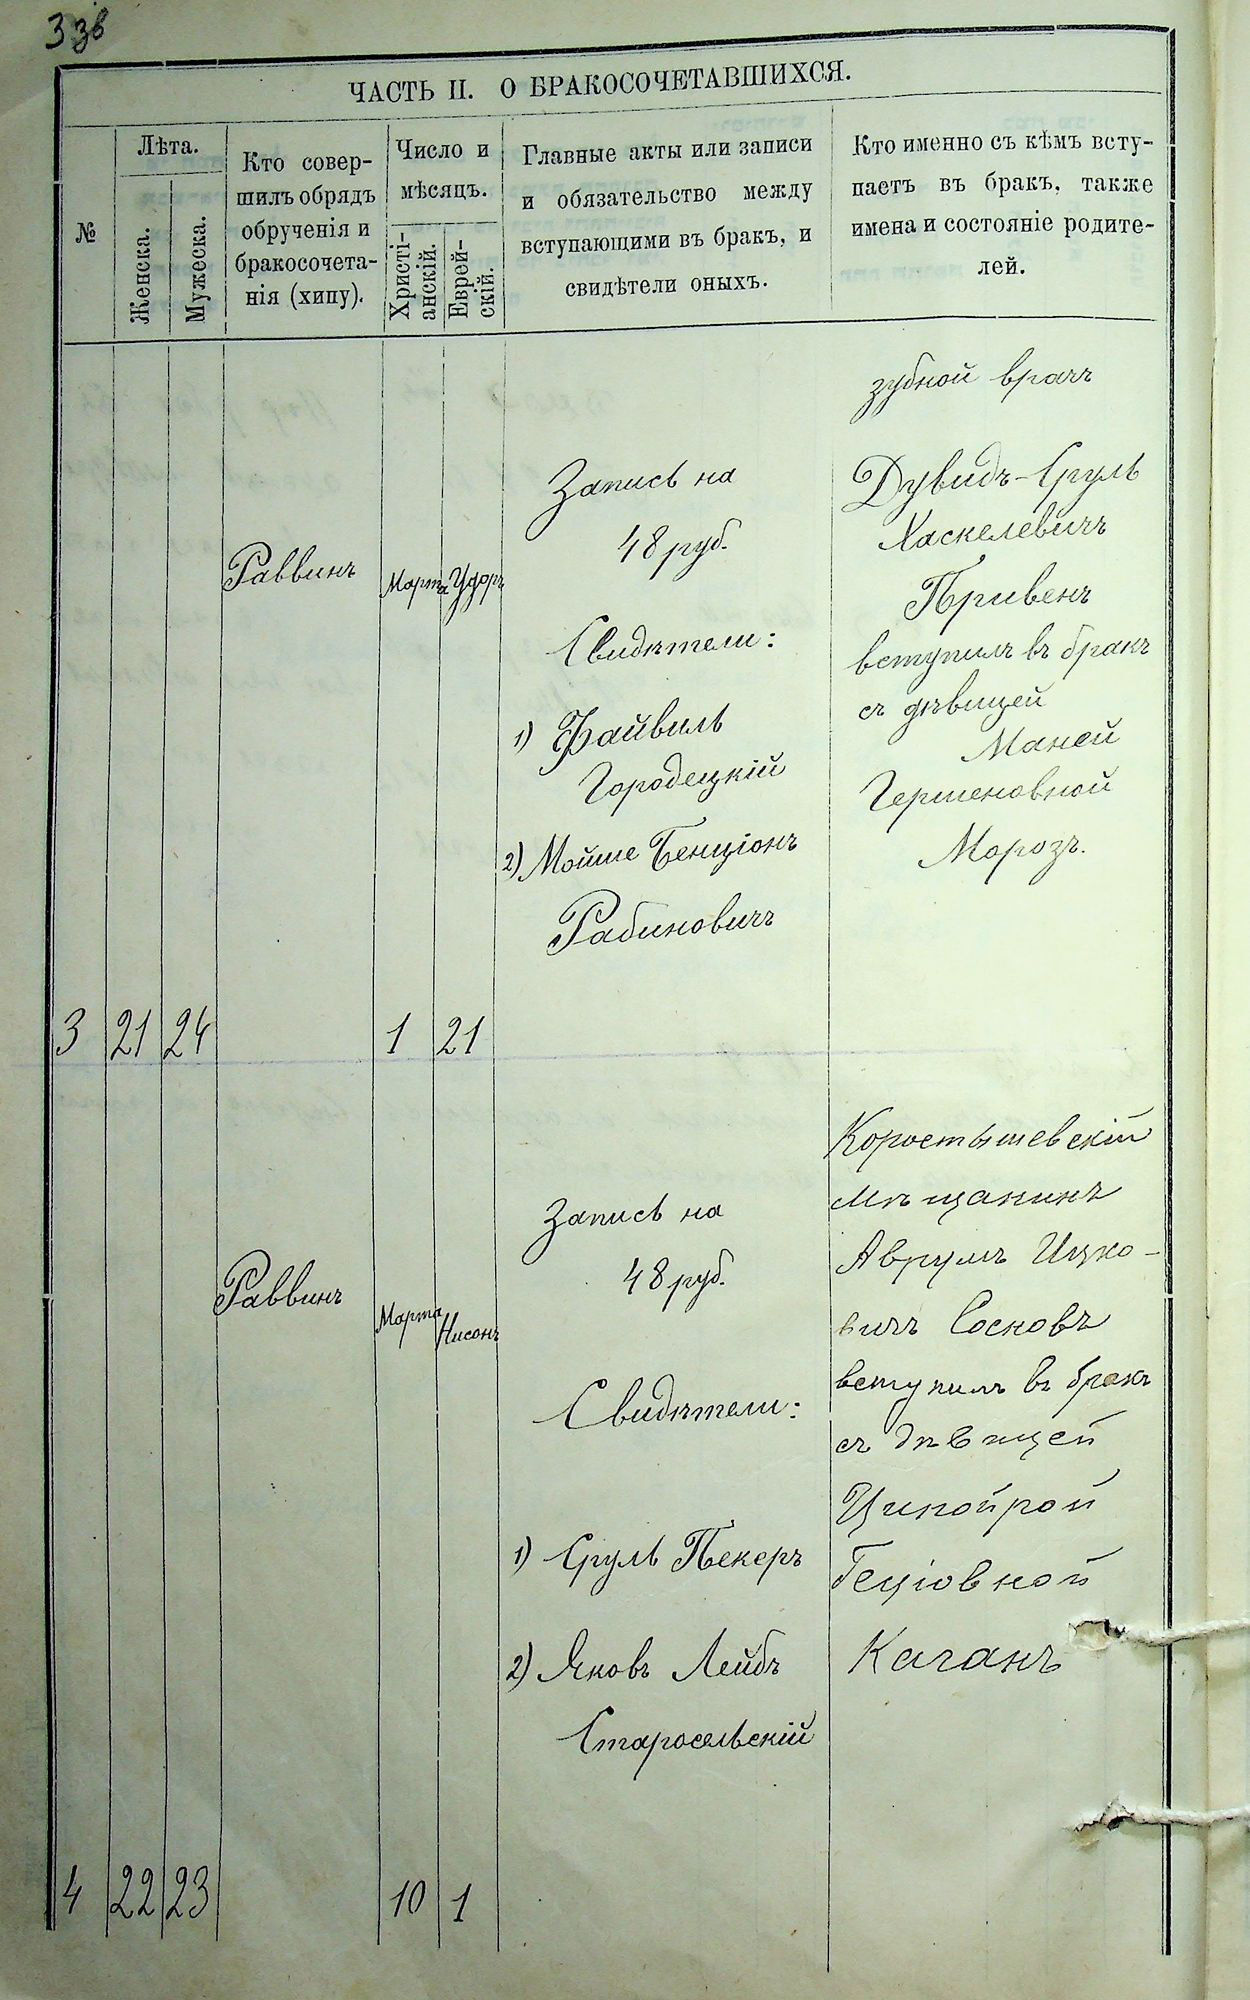 3 зв
ЧАСТЬ II. О БРАКОСОЧЕТАВШИХСЯ.
№
Лѣта.
Женска.
Мужеска.
Кто совер-
шилъ обрядъ
обрученія и
бракосочета-
нія (хипу).
Число и
мѣсяцъ.
Христі-
анскій.
Еврей-
скій.
Главные акты или записи
и обязательство между
вступающими въ бракъ, и
свидѣтели оныхъ.
Кто именно съ кѣмъ всту-
паетъ въ бракъ, также
имена и состояніе родите-
лей.
3
21
24
Раввинъ
Марта
1
Удоръ
21
Запись на
48 руб.
Свидѣтели:
1) Файвиль
Городецкій
2) Мойше Бенціонъ
Рабиновичъ
зубной врачъ
Дувидъ-Сруль
Хаскелевичъ
Привенъ
вступилъ въ бракъ
съ дѣвицей
Маней
Гершеновной
Морозъ.
4
22
23
Раввинъ
Марта
10
Нисонъ
1
Запись на
48 руб.
Свидѣтели:
1) Сруль Пекеръ
2) Яковъ Лейбъ
Старосельскій
Коростышевскій
мѣщанинъ
Аврумъ Ицко-
вичъ Сосновъ
вступилъ въ бракъ
съ дѣвицей
Ципойрой
Геціовной
Каганъ